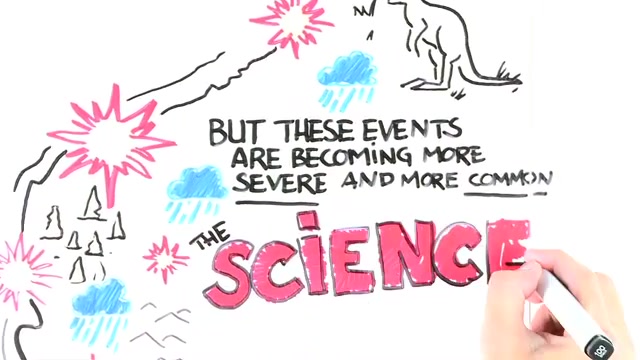 BUT THESE EVENTS
ARE BECOMING MORE
SEVERE AND MORE COMMON
THE
SCIENCE